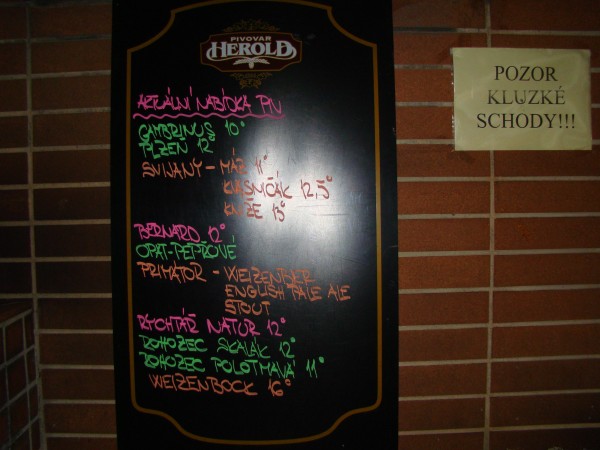 PIVOVAR
HEROLD
AKTUÁLNÍ NABÍDKA PIV
GAMBRINUS 10°
PLZEŇ 12°
SVIJANY - MÁZ 11°
KVASNIČÁK 12,5°
KNÍŽE 13°
BERNARD 12°
OPAT-PEPŘOVÉ
PRIMÁTOR - WEIZENBIER
ENGLISH PALE ALE
STOUT
RYCHTÁŘ NATUR 12°
ROHOZEC SKALÁK 12°
ROHOZEC POLOTMAVÁ 11°
WEIZENBOCK 16°
POZOR
KLUZKÉ
SCHODY!!!